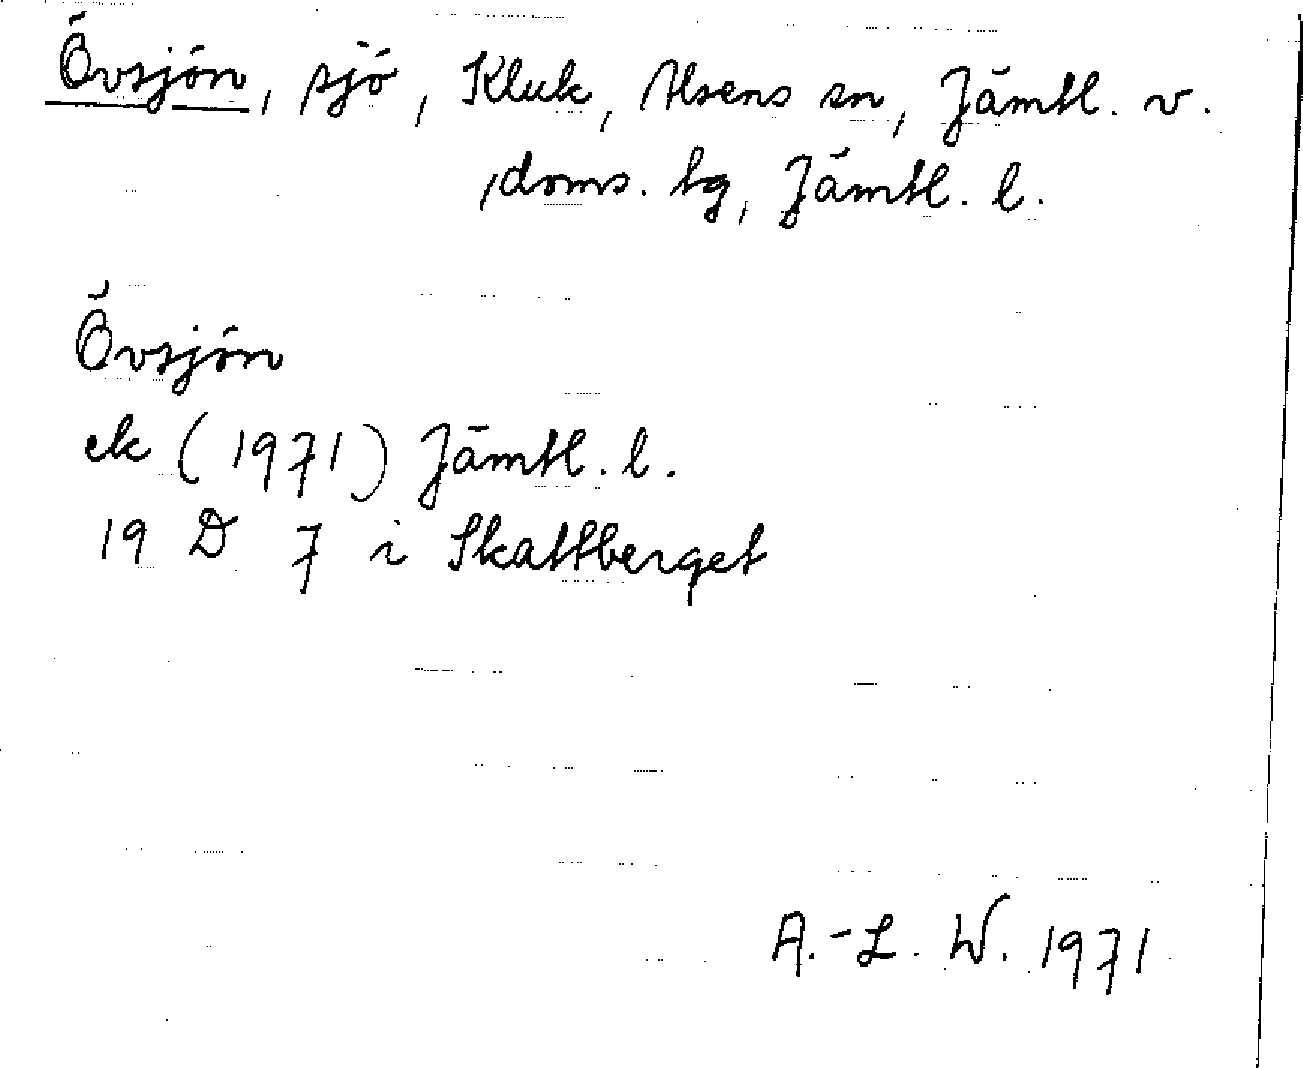 Övsjön, sjö, Kluk, Alsens sn, Jämtl. v.
doms. tg, Jämtl. l.
Övsjön
ek (1971) Jämtl. l.
19 D 7 i Skattberget
A.-L. W. 1971